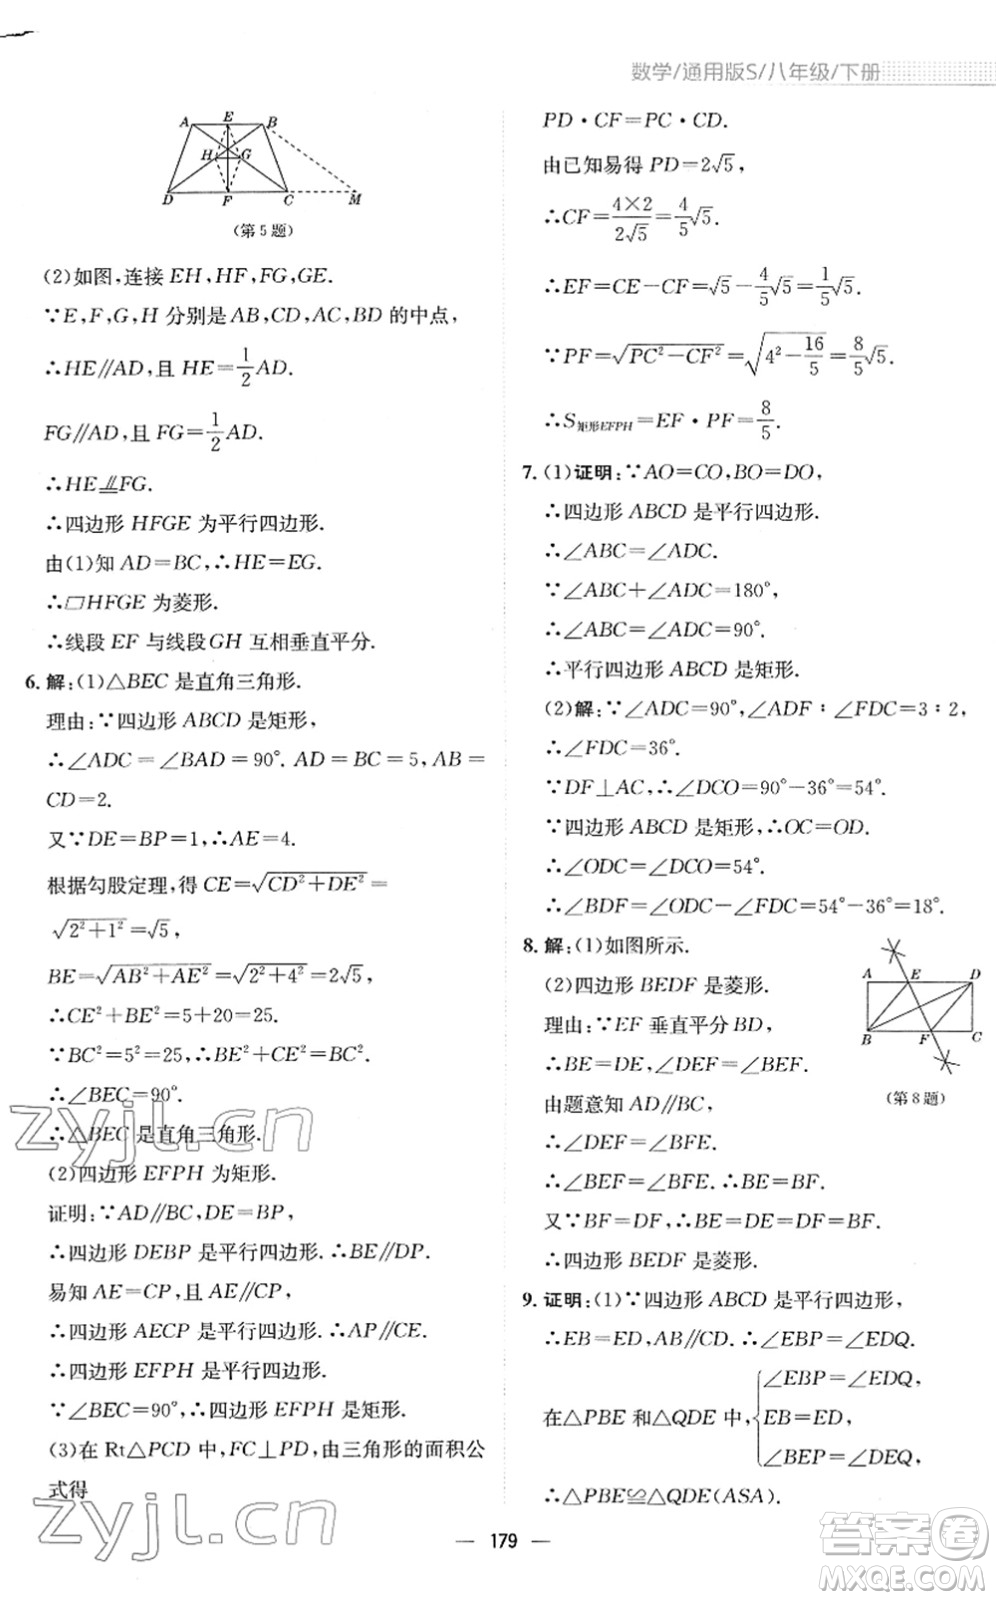 数学/通用版S/八年级/下册
A E B
H G
D F C M
(第5题)
(2)如图,连接EH,HF,FG,GE.
∵E,F,G,H分别是AB,CD,AC,BD的中点,
∴HE∥AD,且HE=1/2AD.
FG∥AD,且FG=1/2AD.
∴HE⫽FG.
∴四边形HFGE为平行四边形.
由(1)知AD=BC,∴HE=EG.
∴▱HFGE为菱形.
∴线段EF与线段GH互相垂直平分.
6.解:(1)△BEC是直角三角形.
理由:∵四边形ABCD是矩形,
∴∠ADC=∠BAD=90°. AD=BC=5, AB=
CD=2.
又∵DE=BP=1,∴AE=4.
根据勾股定理,得CE=√(CD²+DE²)=
√(2²+1²)=√5,
BE=√(AB²+AE²)=√(2²+4²)=2√5,
∴CE²+BE²=5+20=25.
∵BC²=5²=25,∴BE²+CE²=BC².
∴∠BEC=90°.
∴△BEC是直角三角形.
(2)四边形EFPH为矩形.
证明:∵AD∥BC,DE=BP,
∴四边形DEBP是平行四边形.∴BE∥DP.
易知AE=CP,且AE∥CP.
∴四边形AECP是平行四边形.∴AP∥CE.
∴四边形EFPH是平行四边形.
∵∠BEC=90°,∴四边形EFPH是矩形.
(3)在Rt△PCD中,FC⊥PD,由三角形的面积公
式得
PD·CF=PC·CD.
由已知易得PD=2√5,
∴CF=4×2/2√5=4/5√5.
∴EF=CE-CF=√5-4/5√5=1/5√5.
∵PF=√(PC²-CF²)=√(4²-16/5)=8/5√5.
∴S矩形EFPH=EF·PF=8/5.
7.(1)证明:∵AO=CO,BO=DO,
∴四边形ABCD是平行四边形.
∴∠ABC=∠ADC.
∵∠ABC+∠ADC=180°,
∴∠ABC=∠ADC=90°.
∴平行四边形ABCD是矩形.
(2)解:∵∠ADC=90°,∠ADF∶∠FDC=3∶2,
∴∠FDC=36°.
∵DF⊥AC,∴∠DCO=90°-36°=54°.
∵四边形ABCD是矩形,∴OC=OD.
∴∠ODC=∠DCO=54°.
∴∠BDF=∠ODC-∠FDC=54°-36°=18°.
8.解:(1)如图所示.
(2)四边形BEDF是菱形.
理由:∵EF垂直平分BD,
∴BE=DE,∠DEF=∠BEF.
由题意知AD∥BC,
∴∠DEF=∠BFE.
∴∠BEF=∠BFE.∴BE=BF.
又∵BF=DF,∴BE=DE=DF=BF.
∴四边形BEDF是菱形.
A E D
B F C
(第8题)
9.证明:(1)∵四边形ABCD是平行四边形,
∴EB=ED,AB∥CD.∴∠EBP=∠EDQ.
∠EBP=∠EDQ,
在△PBE和△QDE中,{EB=ED,
∠BEP=∠DEQ,
∴△PBE≌△QDE(ASA).
— 179 —
zyjl.cn
zyjl.cn
答案圈
MXQE.COM